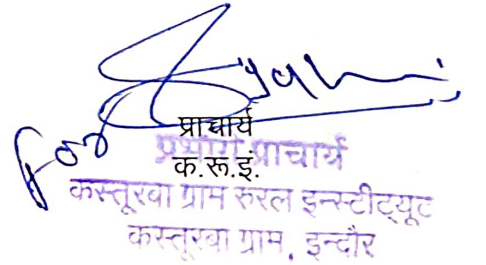 For
प्राचार्य
प्रभारी प्राचार्य
क.रू.इं.
कस्तूरबा ग्राम रुरल इन्स्टीट्यूट
कस्तूरबा ग्राम, इन्दौर